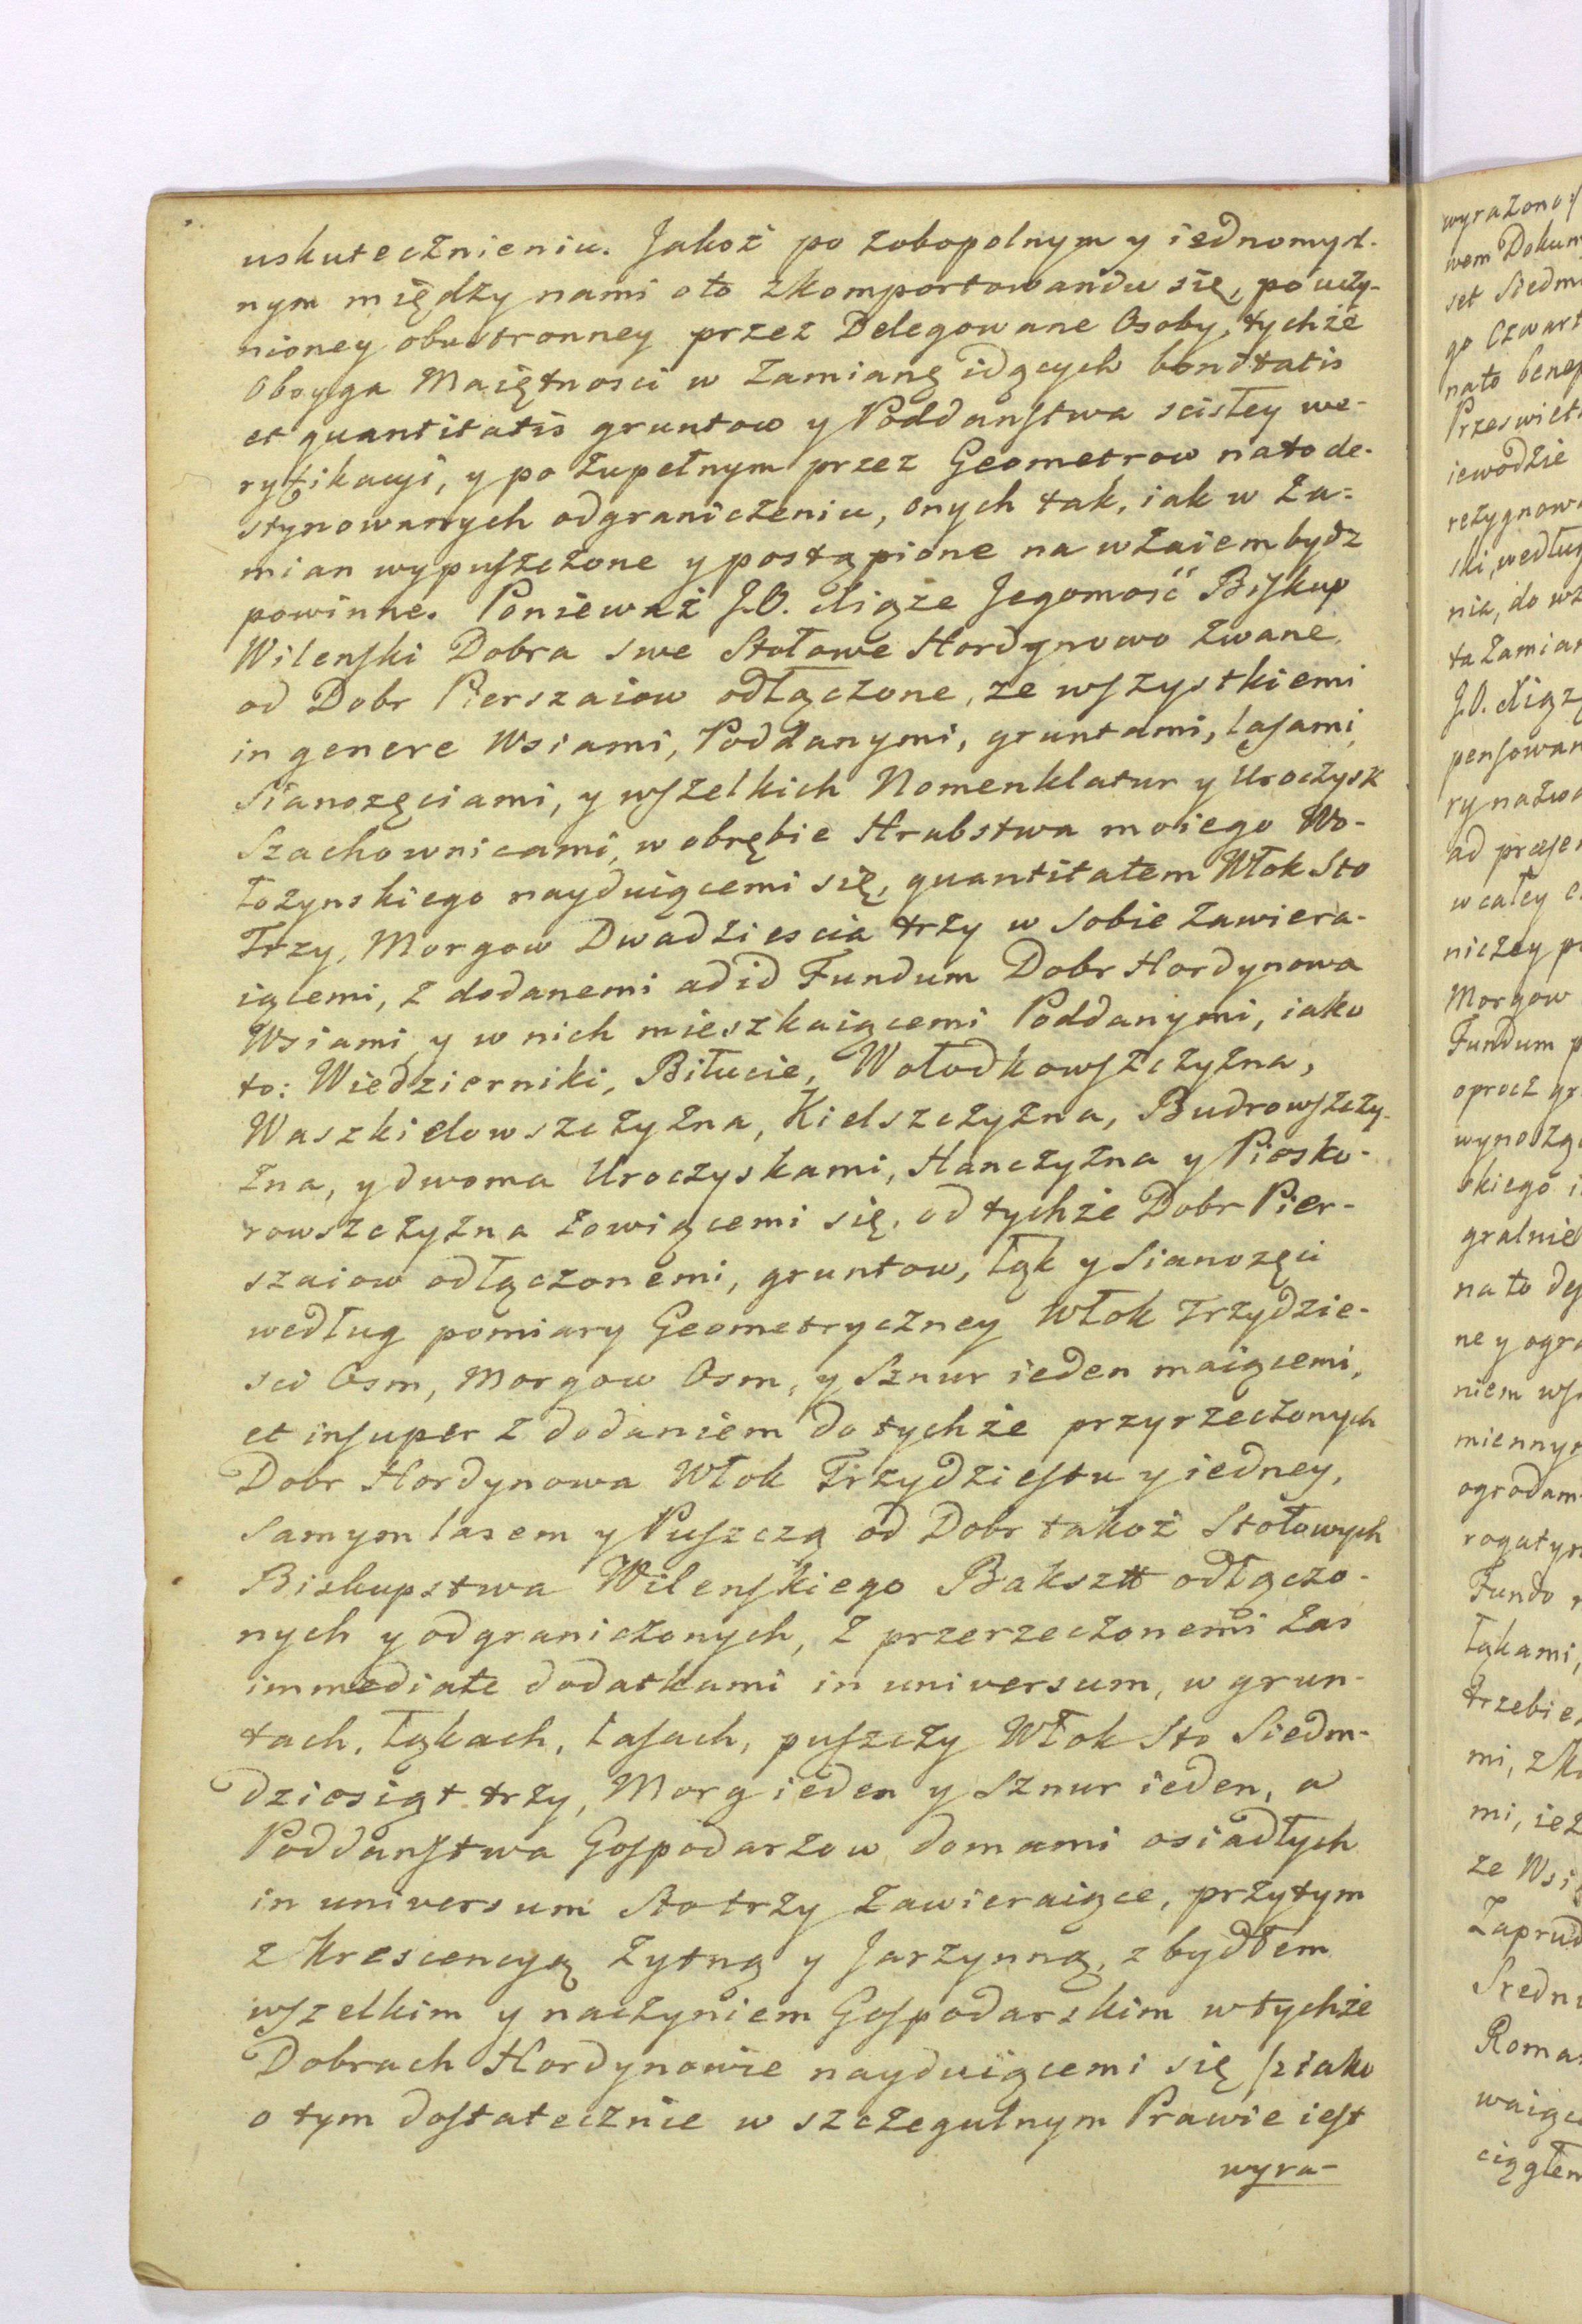 uskutecznieniu. Jakoż po zobopolnym y iednomysl-
nym między nami o to zkomportowaniu się, po uczy-
nioney obustronney przez Delegowane Osoby, tychże
Oboyga Maiętnosci w zamianę idących bonitatis
et quantitatis gruntow y Poddanstwa scisłey we-
ryfikacyi, y po zupełnym przez Geometrow na to de-
stynowanych odgraniczeniu, onych tak, iak w za=
mian wypuszczone y postąpione na wzaiem bydz
powinne. Ponieważ J.O. Xiąże Jegomość Biskup
Wilenski Dobra swe Stołowe Hordynowo zwane,
od Dobr Pierszaiow odłączone, ze wszystkiemi
in genere Wsiami, Poddanymi, gruntami, lasami,
Sianozęciami, y wszelkich Nomenklatur y Uroczysk
Szachownicami, w obrębie Hrabstwa moiego Wo-
łożynskiego nayduiącemi się, quantitatem Włok Sto
Trzy, Morgow Dwadziescia trzy w sobie zawiera-
iącemi, z dodanemi ad id Fundum Dobr Hordynowa
Wsiami, y w nich mieszkaiącemi Poddanymi, iako
to: Wiedzierniki, Biłucie, Wołodkowszczyzna,
Waszkielowszczyzna, Kielszczyzna, Budrowszczy-
zna, y dwoma Uroczyskami, Hanczyzna y Piosko-
rowszczyzna zowiącemi się, od tychże Dobr Pier-
szaiow odłączonemi, gruntow, łąk y Sianozęci
według pomiary Geometryczney Włok Trzydzie-
sci Osm, Morgow Osm, y Sznur ieden maiącemi,
et insuper z dodaniem do tychże przyrzeczonych
Dobr Hordynowa Włok Trzydziestu y iedney,
samym lasem y Puszczą od Dobr takoż Stołowych
Biskupstwa Wilenskiego Bakszt odłączo-
nych y odgraniczonych, z przerzeczonemi zas
immediate dodatkami in universum, w grun-
tach, łąkach, lasach, puszczy Włok Sto Siedm-
dziesiąt trzy, Morg ieden y Sznur ieden, a
Poddanstwa Gospodarzow domami osiadłych
in universum Sto trzy zawieraiące, przytym
z Krescencyą żytną y Jarzynną, z bydłem
wszelkim y naczyniem Gospodarskim w tychże
Dobrach Hordynowie nayduiącemi się /: iako
o tym dostatecznie w szczegulnym Prawie iest
wyra-
wyrazono :/
wem Dokum
set Siedm
go Czwart
na to benep
Przeswiet
iewodzie
rezygnow
ski, według
nia, do wz
ta zamian
J.O. Xiąż
pensowan
ry nazwa
ad præsen
w całey
niczey p
Morgow
Fundum p
oprocz gr
wynosząc
skiego i
gralnie
na to de
ne y ogra
niem ws
miennym
ogrodam
rogatym
Fundo
łąkami,
trzebie
mi, z K
mi, iez
ze Wsi
Zaprud
Sredn
Roma
waiąc
ciągłem